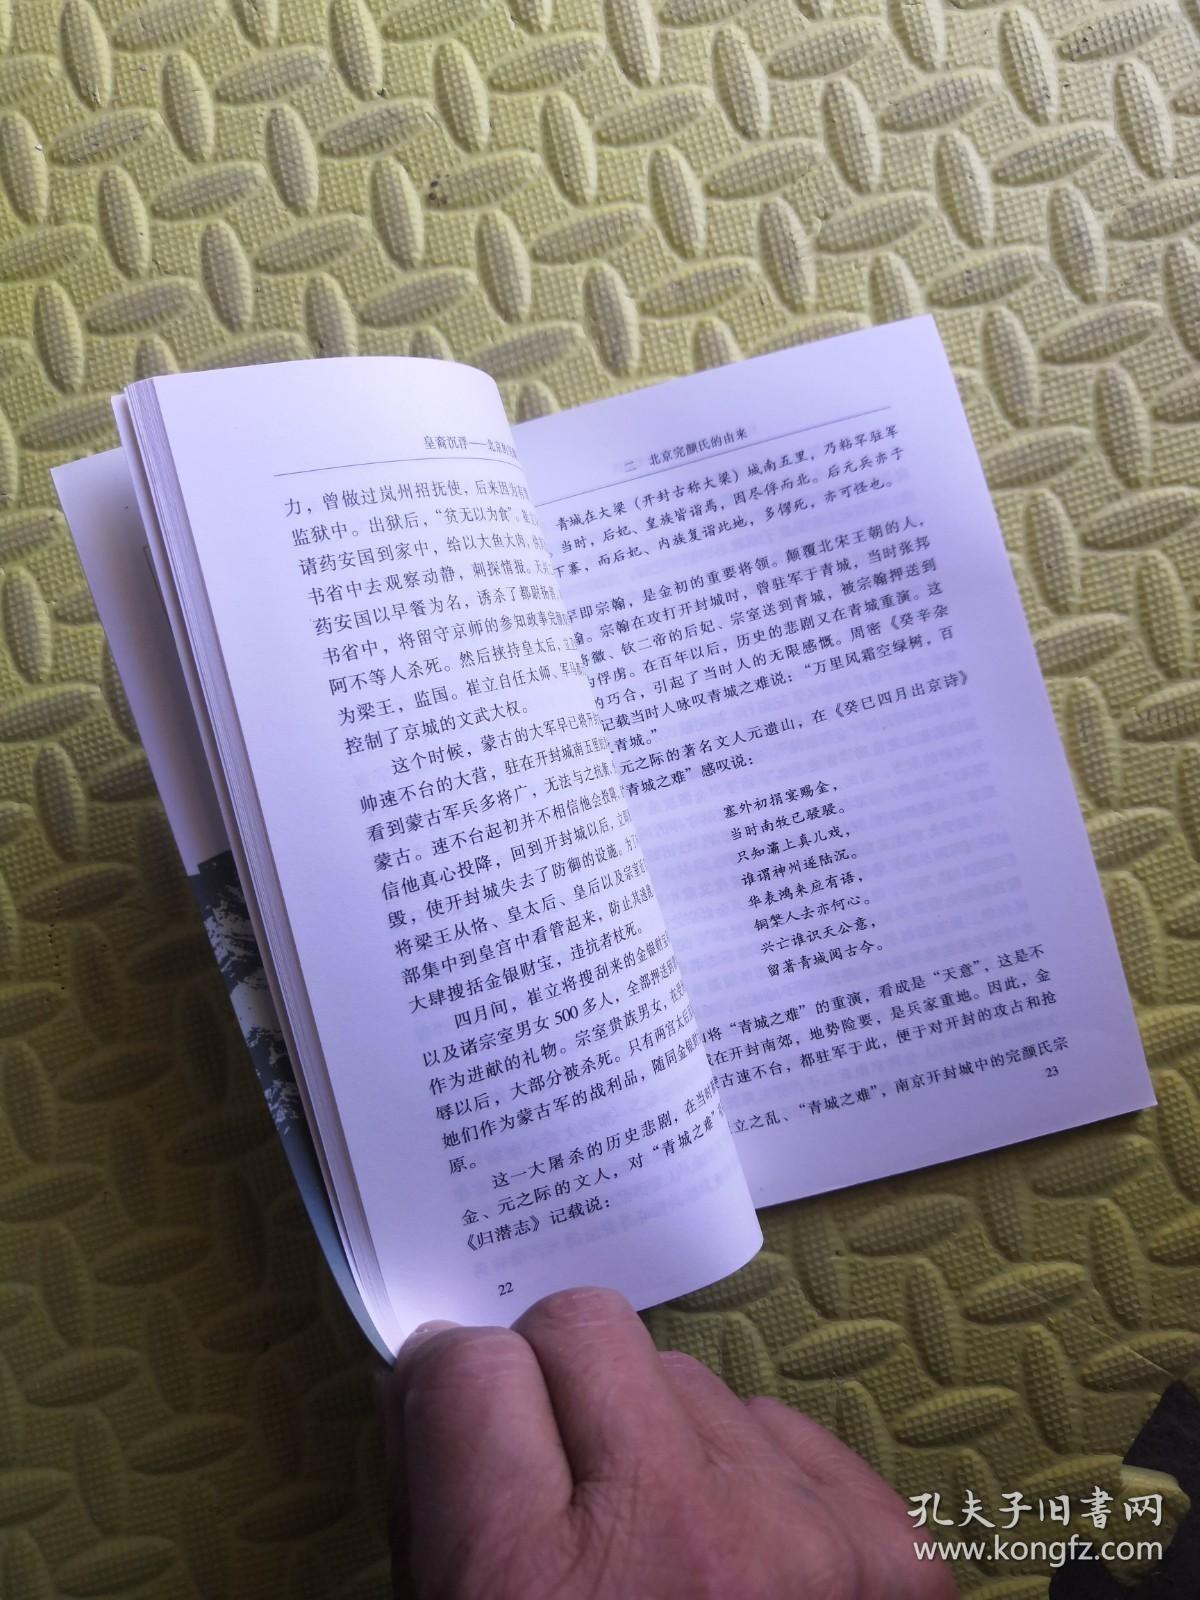 皇裔沉浮——北京的完颜
力，曾做过岚州招抚使，后来因为有罪
监狱中。出狱后，“贫无以为食”。崔立
请药安国到家中，给以大鱼大肉，供
书省中去观察动静，刺探情报。天兴
药安国以早餐为名，诱杀了都尉杨善
书省中，将留守京师的参知政事完颜
阿不等人杀死。然后挟持皇太后，立
为梁王，监国。崔立自任太师、军马
控制了京城的文武大权。
这个时候，蒙古的大军早已将开封
帅速不台的大营，驻在开封城南五里的
看到蒙古军兵多将广，无法与之抗衡，
蒙古。速不台起初并不相信他会投降，
信他真心投降，回到开封城以后，立即
毁，使开封城失去了防御的设施。为了
将梁王从恪、皇太后、皇后以及宗室近
部集中到皇宫中看管起来，防止其逃跑
大肆搜括金银财宝，违抗者杖死。
四月间，崔立将搜刮来的金银财宝
以及诸宗室男女500多人，全部押送到
作为进献的礼物。宗室贵族男女，在受
辱以后，大部分被杀死。只有两宫太后
她们作为蒙古军的战利品，随同金银
原。
这一大屠杀的历史悲剧，在当时
金、元之际的文人，对“青城之难”
《归潜志》记载说：
22
二 北京完颜氏的由来
青城在大梁（开封古称大梁）城南五里，乃粘罕驻军
当时，后妃、皇族皆诣焉，因尽俘而北。后元兵亦于
下寨，而后妃、内族复诣此地，多僇死，亦可怪也。
罕即宗翰，是金初的重要将领。颠覆北宋王朝的人，
翰。宗翰在攻打开封城时，曾驻军于青城，当时张邦
将徽、钦二帝的后妃、宗室送到青城，被宗翰押送到
为俘虏。在百年以后，历史的悲剧又在青城重演。这
的巧合，引起了当时人的无限感慨。周密《癸辛杂
记载当时人咏叹青城之难说：“万里风霜空绿树，百
青城。”
元之际的著名文人元遗山，在《癸巳四月出京诗》
“青城之难”感叹说：
塞外初捐宴赐金，
当时南牧已骎骎。
只知灞上真儿戏，
谁谓神州遂陆沉。
华表鸿来应有语，
铜槃人去亦何心。
兴亡谁识天公意，
留著青城阅古今。
将“青城之难”的重演，看成是“天意”，这是不
在开封南郊，地势险要，是兵家重地。因此，金
蒙古速不台，都驻军于此，便于对开封的攻占和抢
立之乱、“青城之难”，南京开封城中的完颜氏宗
23
孔夫子旧书网
www.kongfz.com